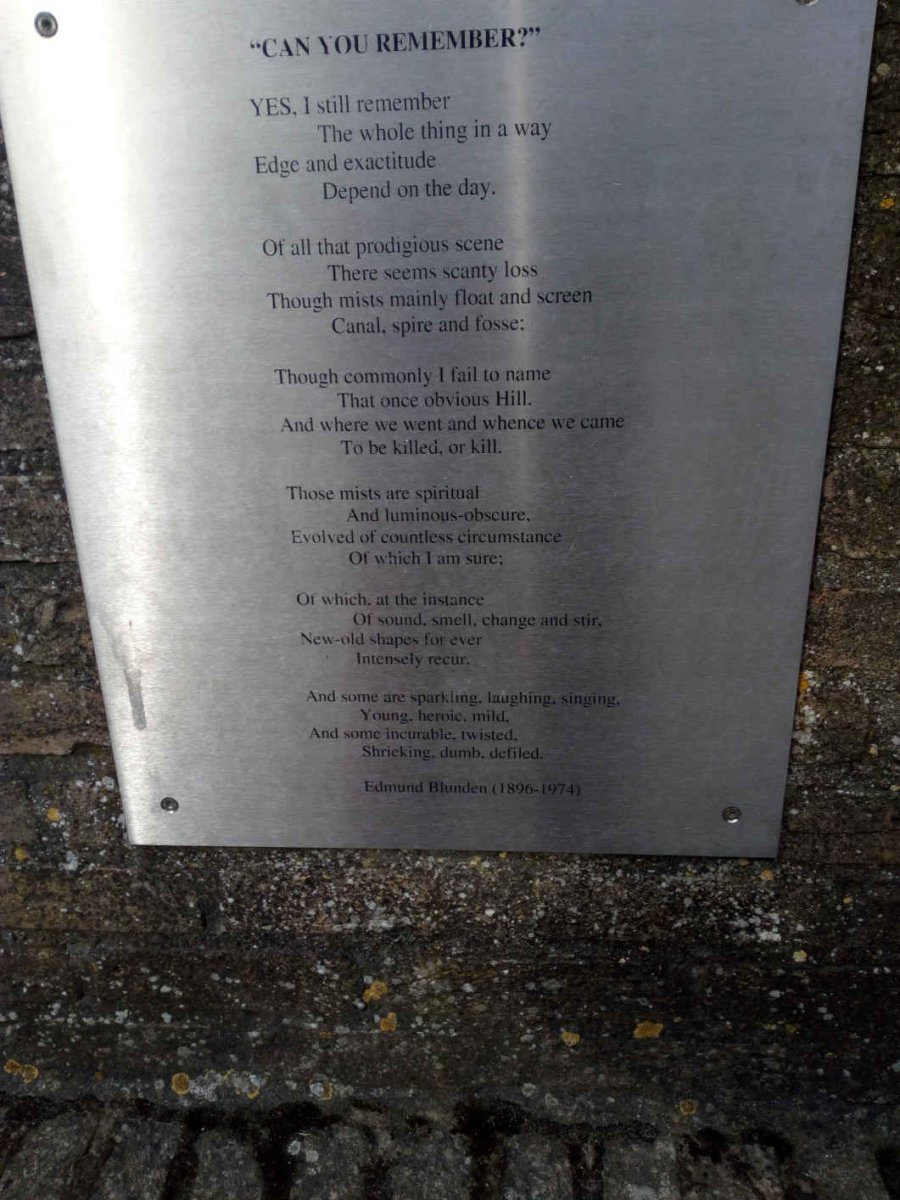 “CAN YOU REMEMBER?”
YES, I still remember
The whole thing in a way
Edge and exactitude
Depend on the day.
Of all that prodigious scene
There seems scanty loss
Though mists mainly float and screen
Canal, spire and fosse;
Though commonly I fail to name
That once obvious Hill.
And where we went and whence we came
To be killed, or kill.
Those mists are spiritual
And luminous-obscure,
Evolved of countless circumstance
Of which I am sure;
Of which, at the instance
Of sound, smell, change and stir,
New-old shapes for ever
Intensely recur.
And some are sparkling, laughing, singing,
Young, heroic, mild,
And some incurable, twisted,
Shrieking, dumb, defiled.
Edmund Blunden (1896-1974)